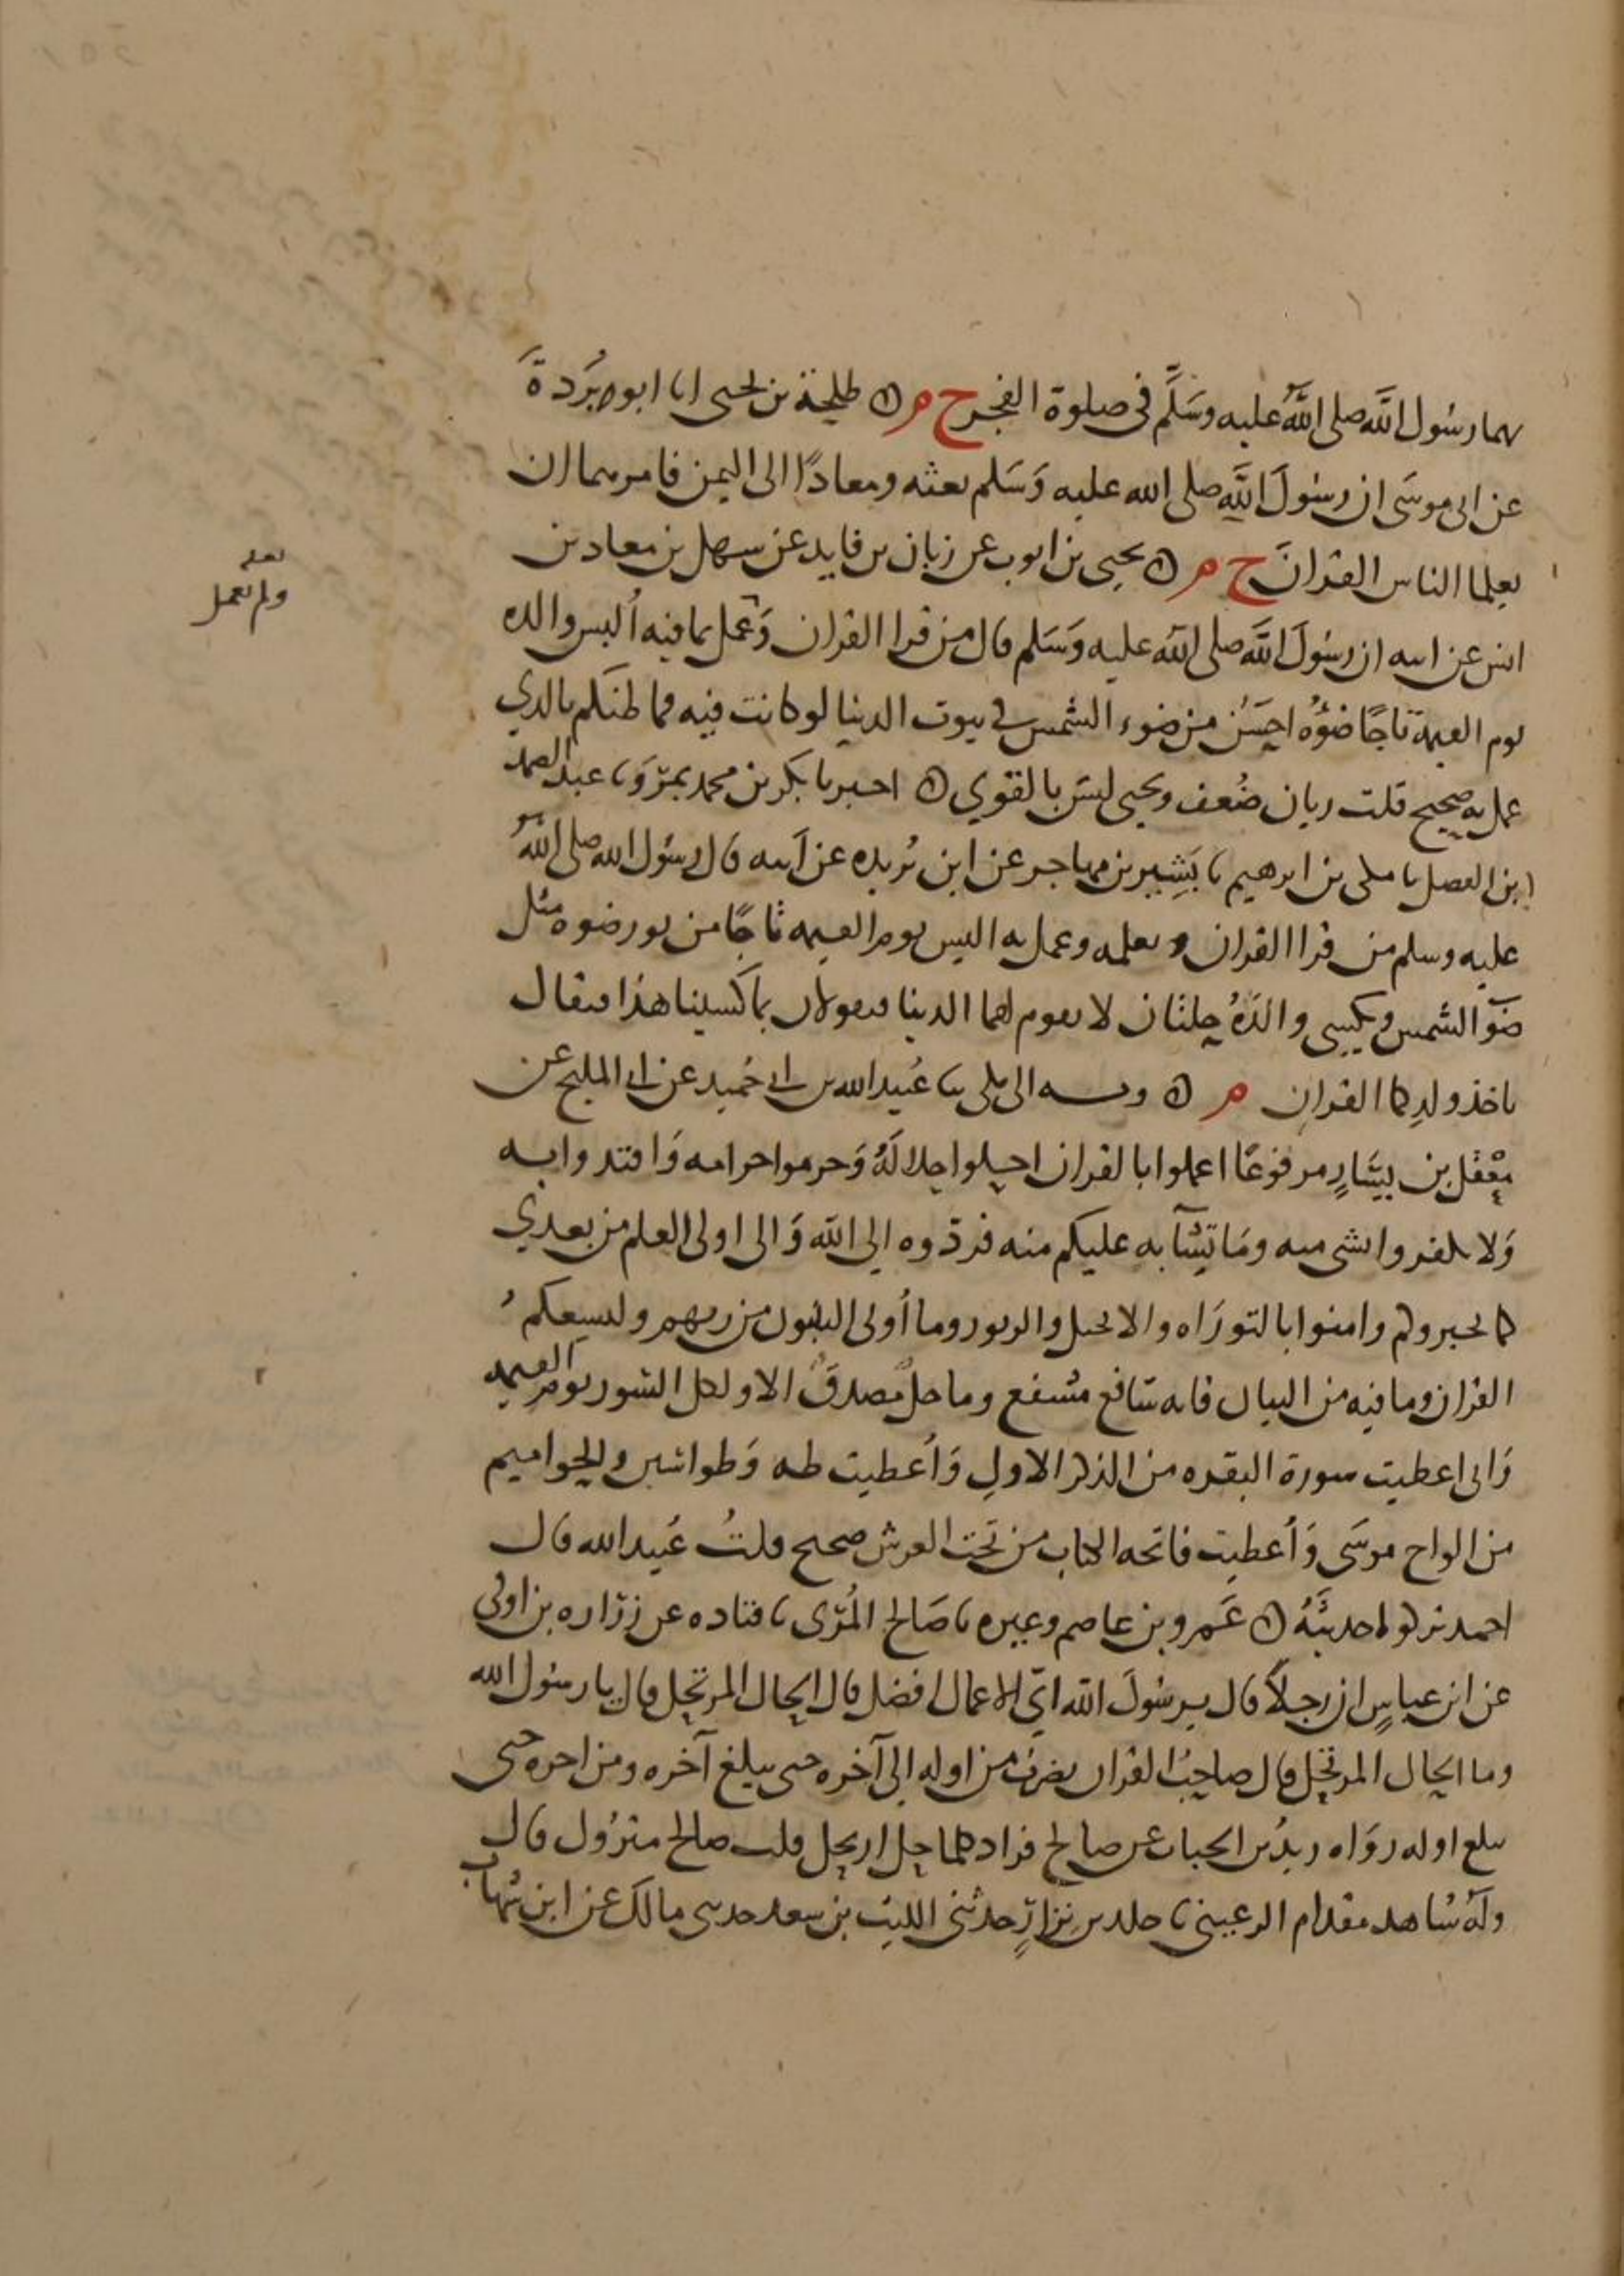 بهما رسُول اللَّه صلى اللَّه عليه وسَلَّم في صلوة الفجر ح م ه طلحة بن يحيى انا ابو بُردةَ
عن ابى موسَى ان رسُولَ اللَّه صلى الله عليه وَسَلم بعثه ومعاذًا الى اليمن فامرهما ان
يعلما الناس القرانَ ح م ه يحيى بن ايوب عن زبان بن فايد عن سهل بن معاذ بن
انس عن ابيه ان رسُولَ اللَّه صلى اللَّه عليه وَسَلم قال من قرا القران وَعمل بما فيه أُلبس والده
يوم القيمة تاجًا ضوؤُه احسَنُ من ضوء الشمس في بيوت الدنيا لو كانت فيه فما ظنكم بالذي
عمل به صحيح قلت زبان ضُعف ويحيى ليسَ بالقوي ه اخبرنا بكر بن محمد بمرْوَ نا عبد الصمد
ابن الفضل نا مكى بن ابرهيم نا بَشِير بن مهاجر عن ابن بُريده عن ابيه قال رسُول الله صلى اللَّهُ
عليه وسلم من قرا القران وتعلمه وعمل به البس يوم القيمه تاجًا من نور ضوه مثل
ضوَ الشمس ويكسى والدَهُ حلتان لا تقوم لهما الدنيا فيقولان بما كسينا هذا فيقال
باخذ ولدِكما القرانِ م ه وبه الى مكى نا عُبيد الله بن ابي حُميد عن ابي المليح عن
مَعْقل بن يسَارٍ مرفوعًا اعملوا بالقران احلوا حلالهُ وَحرموا حرامه وَاقتدوا به
وَلا تكفروا بشى منه ومَا تشَابه عليكم منه فردّوه الي اللَّه وَالى اولى العلم من بعدي
كما يخبروكم وامنوا بالتورَاه والانجيل والزبور وما أُوتى النبيون من ربهم وليسعكمُ
القران وما فيه من البيان فانه شافع مشفع وماحلٌ مُصدقٌ الا ولكل الشور يوم القيمه
وَانى اعطيت سورة البقره من الذكر الاول وَأُعطيت طه وَطواسين والحواميم
من الواح موسَى وَأُعطيت فاتحه الكتاب من تحت العرش صحيح قلتُ عُبيد الله قال
احمد تركوا حديثَهُ ه عَمرو بن عاصم وغيره نا صَالح المُرّى نا قتاده عن زرَاره بن اوفى
عن ابن عباسٍ ان رجلاً قال يرسُولَ اللَّه ايّ الاعمال افضل قال الحال المرتحل قال يا رسُول الله
وما الحال المرتحل قال صاحبُ القران يضرِبُ من اوله الى آخره حتى يبلغ آخره ومن اخره حتى
يبلغ اوله روَاه زيدُ بن الحباب عن صالح فزاد كلما حل ارتحل قلت صالح متروُك قال
ولهُ شاهد مقدام الرعيني نا خلد بن نزارٍ حدثنى الليث بن سعد حدثنى مالك عن ابن شهاب
ولم يعمل